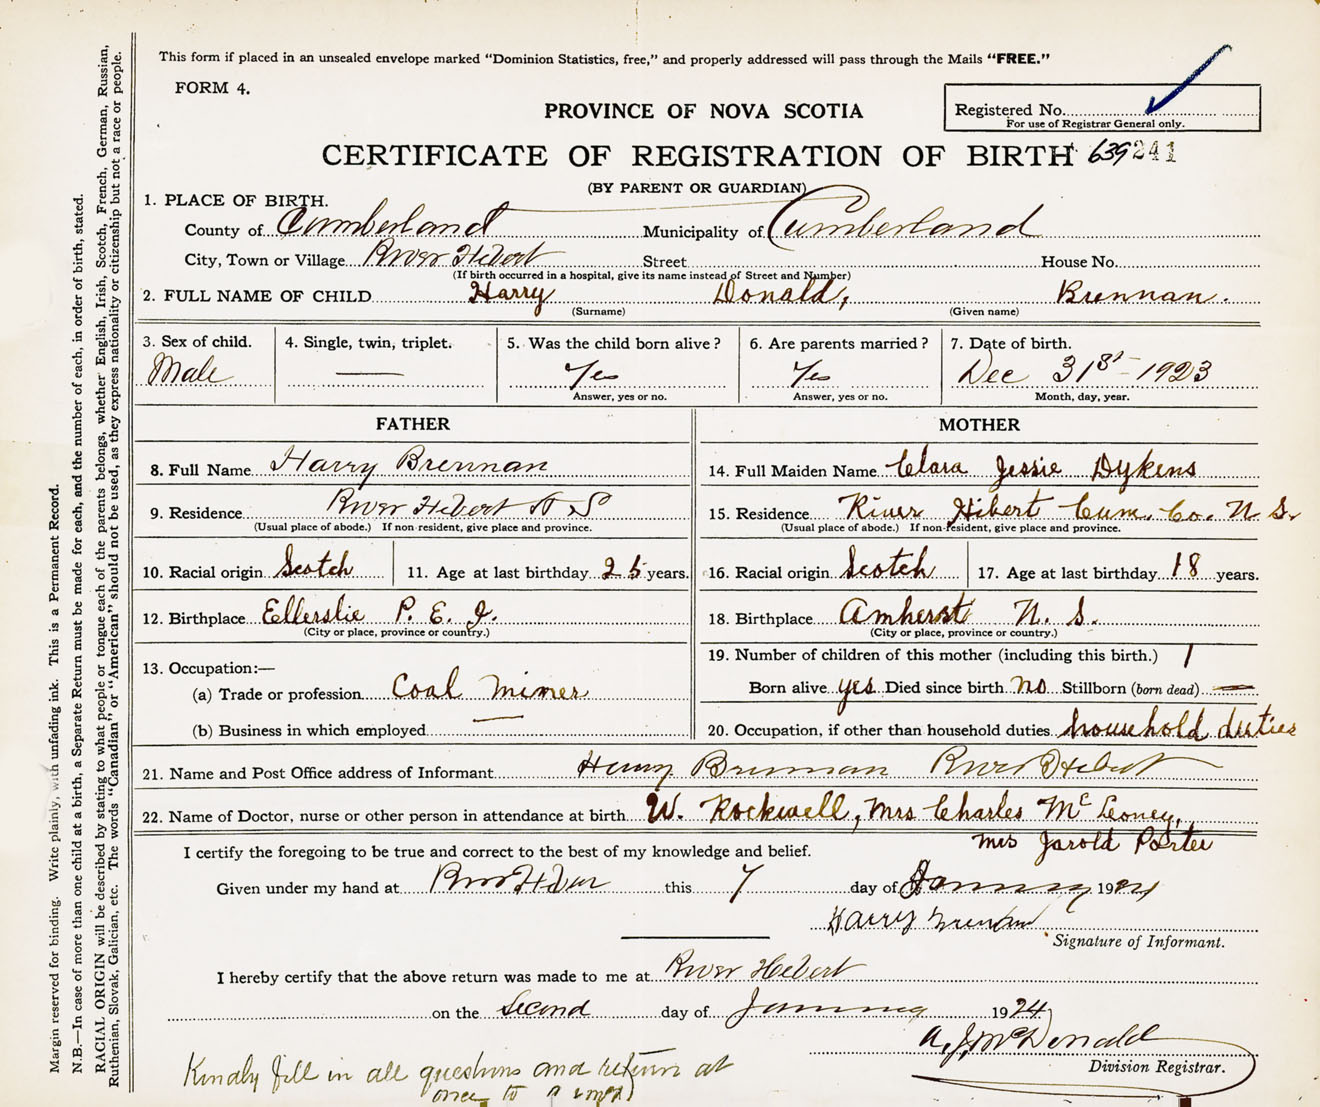 This form if placed in an unsealed envelope marked “Dominion Statistics, free,” and properly addressed will pass through the Mails “FREE.”
FORM 4.
PROVINCE OF NOVA SCOTIA
Registered No.
For use of Registrar General only.
CERTIFICATE OF REGISTRATION OF BIRTH 639241
(BY PARENT OR GUARDIAN)
1. PLACE OF BIRTH.
County of Cumberland Municipality of Cumberland
City, Town or Village River Hebert Street House No.
(If birth occurred in a hospital, give its name instead of Street and Number)
2. FULL NAME OF CHILD Harry Donald, Brennan.
(Surname) (Given name)
3. Sex of child. 4. Single, twin, triplet. 5. Was the child born alive? 6. Are parents married? 7. Date of birth.
Male — Yes Yes Dec 31st–1923
Answer, yes or no. Answer, yes or no. Month, day, year.
FATHER MOTHER
8. Full Name Harry Brennan 14. Full Maiden Name Clara Jessie Dykens
9. Residence River Hebert N S 15. Residence River Hibert Cum. Co. N. S.
(Usual place of abode.) If non-resident, give place and province. (Usual place of abode.) If non-resident, give place and province.
10. Racial origin Scotch 11. Age at last birthday 25 years. 16. Racial origin Scotch 17. Age at last birthday 18 years.
12. Birthplace Ellerslie P. E. I. 18. Birthplace Amherst N. S.
(City or place, province or country.) (City or place, province or country.)
13. Occupation:— 19. Number of children of this mother (including this birth.) 1
(a) Trade or profession Coal Miner Born alive yes Died since birth no Stillborn (born dead) —
(b) Business in which employed — 20. Occupation, if other than household duties household duties
21. Name and Post Office address of Informant Henry Brennan River Hebert
22. Name of Doctor, nurse or other person in attendance at birth W. Rockwell, Mrs Charles Mc Leoney,
Mrs Jarold Porter
I certify the foregoing to be true and correct to the best of my knowledge and belief.
Given under my hand at River Hebert this 7 day of January 1924
Harry Brennan
Signature of Informant.
I hereby certify that the above return was made to me at River Hebert
on the Second day of January 1924
A. J. McDonald
Division Registrar.
Kindly fill in all questions and return at
once to
Margin reserved for binding. Write plainly, with unfading ink. This is a Permanent Record.
N.B.—In case of more than one child at a birth, a Separate Return must be made for each, and the number of each, in order of birth, stated.
RACIAL ORIGIN will be described by stating to what people or tongue each of the parents belongs, whether English, Irish, Scotch, French, German, Russian,
Ruthenian, Slovak, Galician, etc. The words “Canadian” or “American” should not be used, as they express nationality or citizenship but not a race or people.